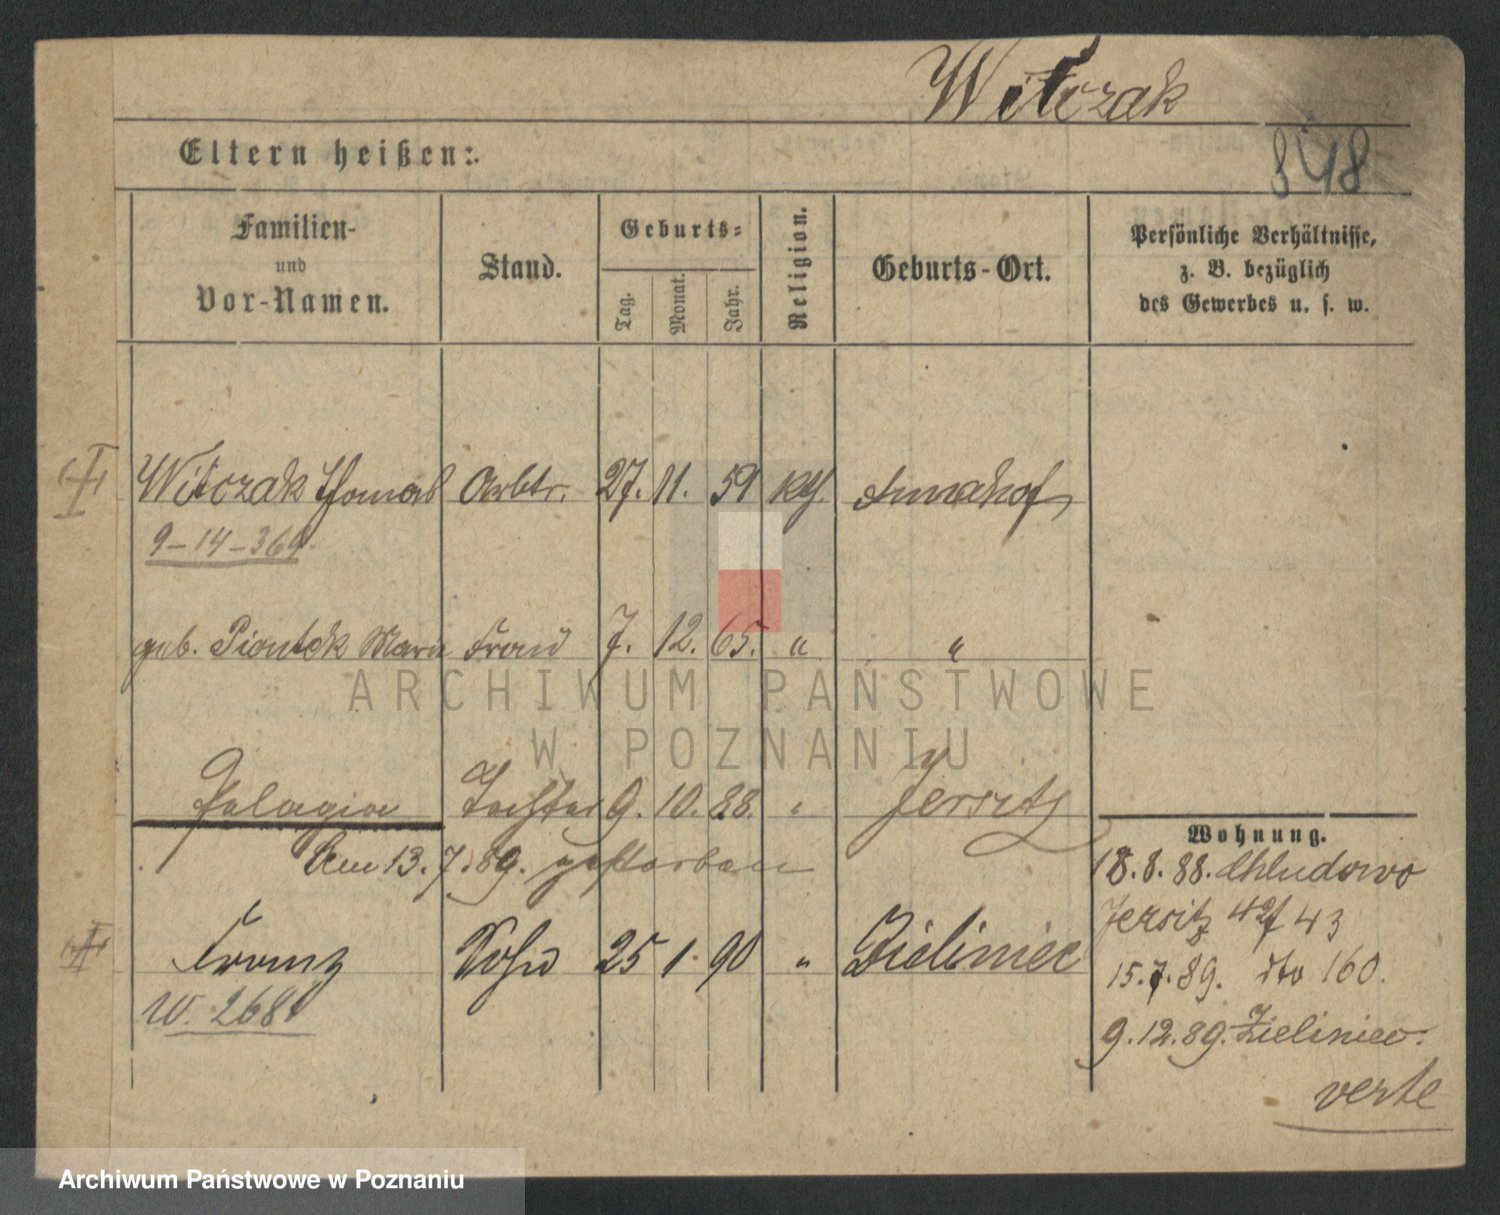 Witczak
848
Eltern heißen:
Familien-
und
Vor-Namen.
Stand.
Geburts-
Tag.
Monat.
Jahr.
Religion.
Geburts-Ort.
Persönliche Verhältnisse,
z. B. bezüglich
des Gewerbes u. s. w.
Witczak Thomas Arbtr. 27. 11. 59 kth. Annahof
9-14-369
geb. Piontek Marie Frau 7. 12. 65. " "
Pelagia Tochter 9. 10. 88. " Jersitz
Am 13.7.89. gestorben
Franz Sohn 25 1 90 " Zieliniec
W. 2681
Wohnung.
18.8.88. Chludowo
Jersitz 43
15.7.89. dto 160.
9.12.89. Zieliniec.
verte
ARCHIWUM PAŃSTWOWE
W POZNANIU
Archiwum Państwowe w Poznaniu